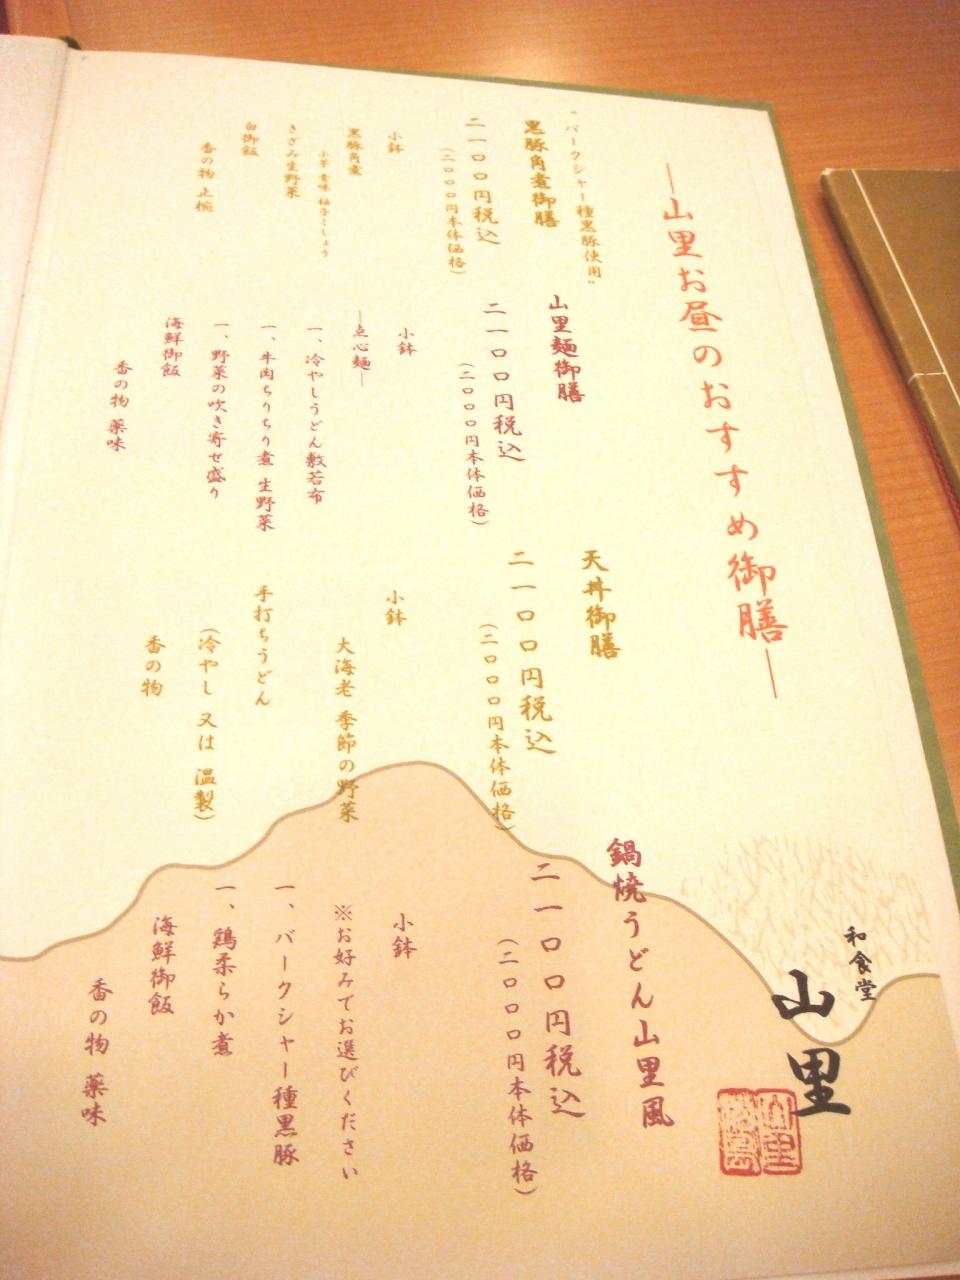 ―山里お昼のおすすめ御膳―
"バークシャー種黒豚使用"
黒豚角煮御膳
二一〇〇円税込
(二〇〇〇円本体価格)
小鉢
黒豚角煮
小芋 青味 柚子こしょう
きざみ生野菜
白御飯
香の物 止椀
山里麺御膳
二一〇〇円税込
(二〇〇〇円本体価格)
小鉢
―点心麺―
一、冷やしうどん敷若布
一、牛肉ちりちり煮 生野菜
一、野菜の吹き寄せ盛り
海鮮御飯
香の物 薬味
天丼御膳
二一〇〇円税込
(二〇〇〇円本体価格)
小鉢
大海老 季節の野菜
手打ちうどん
(冷やし 又は 温製)
香の物
鍋焼うどん山里風
二一〇〇円税込
(二〇〇〇円本体価格)
小鉢
※お好みでお選びください
一、バークシャー種黒豚
一、鶏柔らか煮
海鮮御飯
香の物 薬味
和食堂
山里
山里